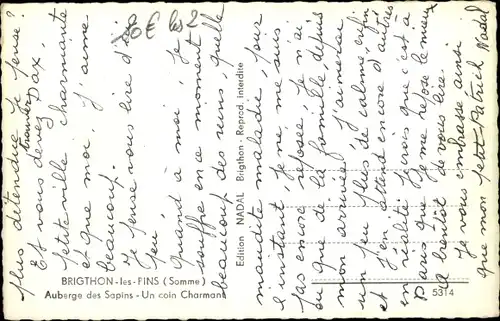 80E les 2
plus détendue je pense!
Et vous devez trouver Dax,
petite ville charmante
et que moi, j'aime
beaucoup.
Je pense vous lire d'ici
peu,
Quand à moi, je
souffre en ce moment
beaucoup des reins, quelle
maudite maladie, pour
l'instant, je ne me suis
pas encore reposée, je n'ai
eu que de la famille, depuis
mon arrivée! J'aimerai
un peu plus de calme, enfin
et j'en attend encore d'autres
en réalité, je crois que c'est à
Paris que je me repose le mieux
A bientôt de vous lire.
Je vous embrasse ainsi
que mon petit Patrick Nadal
Edition NADAL Brigthon - Reprod. Interdite
BRIGTHON-les-FINS (Somme)
Auberge des Sapins - Un coin Charmant
5314